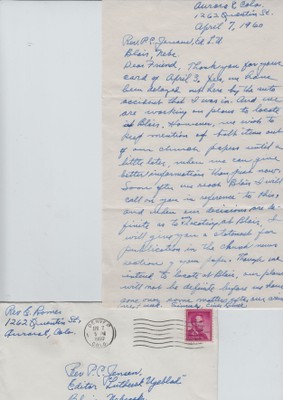 Aurora 8, Colo.
1262 Quentin St.
April 7, 1960
Rev P. C. Jensen, Ed. L.U.
Blair, Nebr.
Dear Friend, Thank you for your
card of April 2. Yes, we have
been delayed out here by the auto
accident that I was in. And we
are working on plans to locate
at Blair. However, we wish to
keep mention of both items out
of our church papers until a
little later, when we can give
better information than just now.
Some after we reach Blair I will
call on you in reference to this,
and when our decisions are de-
finite as to locating at Blair, I
will give you a statement for
publication in the church news
section of your paper. Though we
intend to locate at Blair, our plans
will not be definite before we have
gone over some matters with our
Rev E. Romer
1262 Quentin St.
Aurora 8, Colo.
DENVER
1960
COLO.
Rev P. C. Jensen,
Editor "Luthersk Ugeblad"
Blair, Nebraska